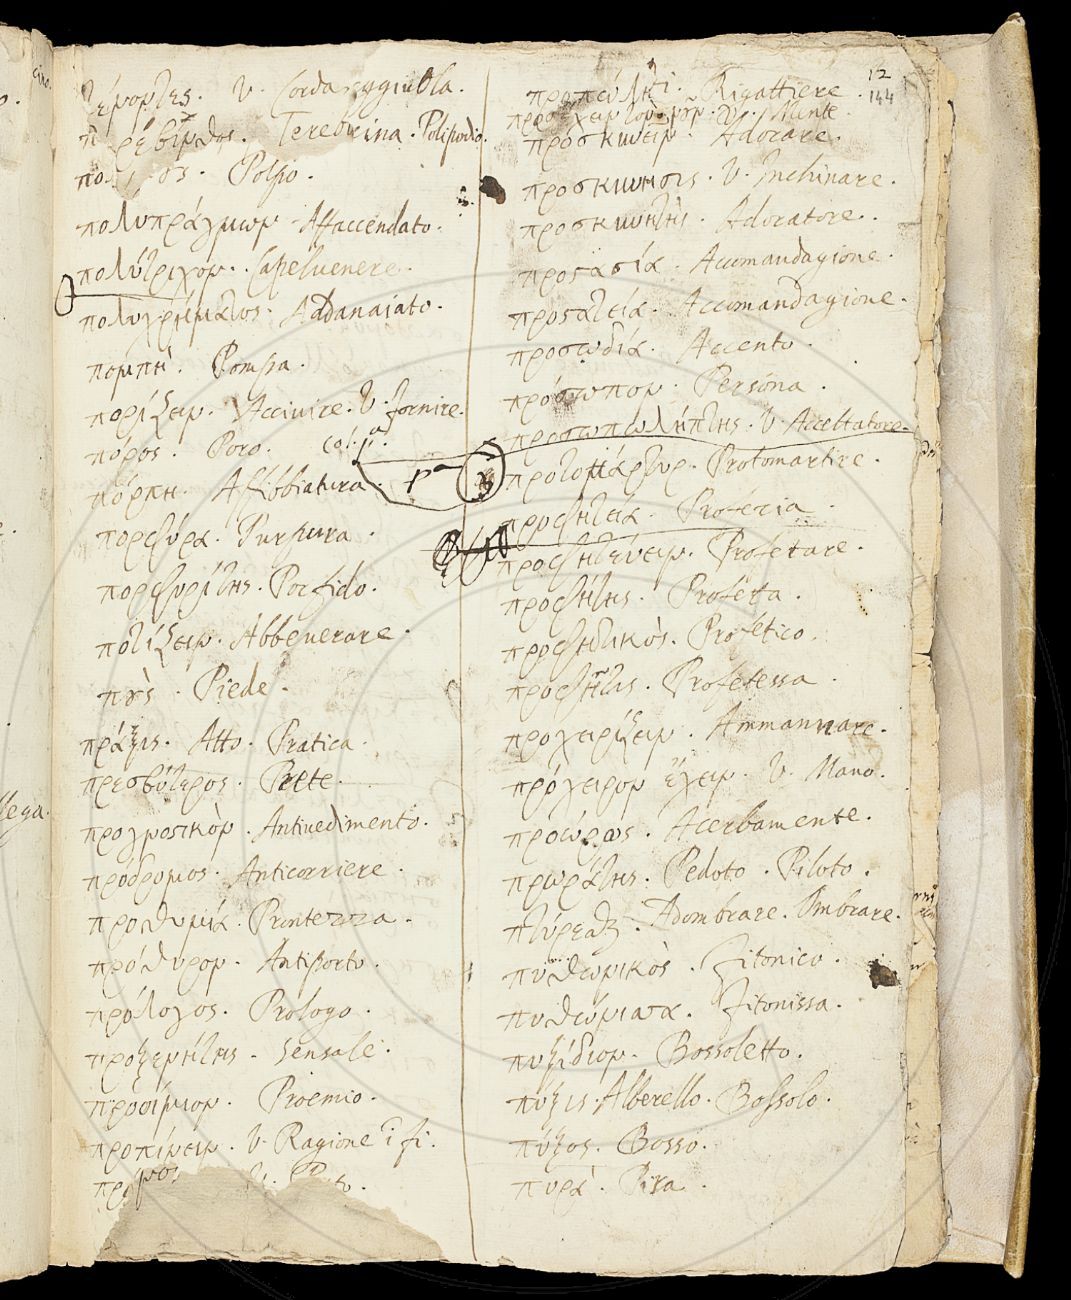 V. Corda
Terebicina. Polipodio.
Polpo.
πολυπράγμων. Affaccendato.
πολύτριχον. Capeluenere.
πολυχρήματος. Addanaiato.
πομπή. Pompa.
πορίζειν. Accivire. V. fornire.
πόρος. Poro. col. pa.
πόρπη. Affibbiatura.
πορφύρα. Purpura.
πορφυρίτης. Porfido.
ποτίζειν. Abbeuerare.
πȣ̀ς. Piede.
πράξις. Atto. Pratica.
πρεσβύτερος. Prete.
προγνοστικὸν. Antiuedimento.
πρόδρομος. Anticorriere.
προθυμία. Prontezza.
πρόθυρον. Antiporto.
πρόλογος. Prologo.
προξενήτης. Sensale.
προοίμιον. Proemio.
προπίνειν. V. Ragione
12
144
Rigattiere.
V. Mente.
προσκυνεῖν. Adorare.
προσκύνησις. V. Inchinare.
προσκυνητὴς. Adoratore.
προϛασία. Accomandagione.
προϛατεία. Accomandagione.
προσῳδία. Accento.
πρόσωπον. Persona.
προσωπωλήπτης. V. Accettatore.
pa
πρωτομάρτυρ. Protomartire.
προφητεία. Profezia.
προφητεύειν. Profetare.
προφήτης. Profeta.
προφητικὸς. Profetico.
προφῆτις. Profetessa.
προχειρίζειν. Ammannare.
πρόχειρον ἔχειν. V. Mano.
προώρως. Acerbamente.
πρωράτης. Pedoto. Piloto.
Adombrare. Ombrare.
πυθωνικὸς. Fitonico.
πυθώνισσα. Fitonissa.
πυξίδιον. Bossoletto.
πύξις. Alberello. Bossolo.
πύξος. Bosso.
πυρὰ. Pira.